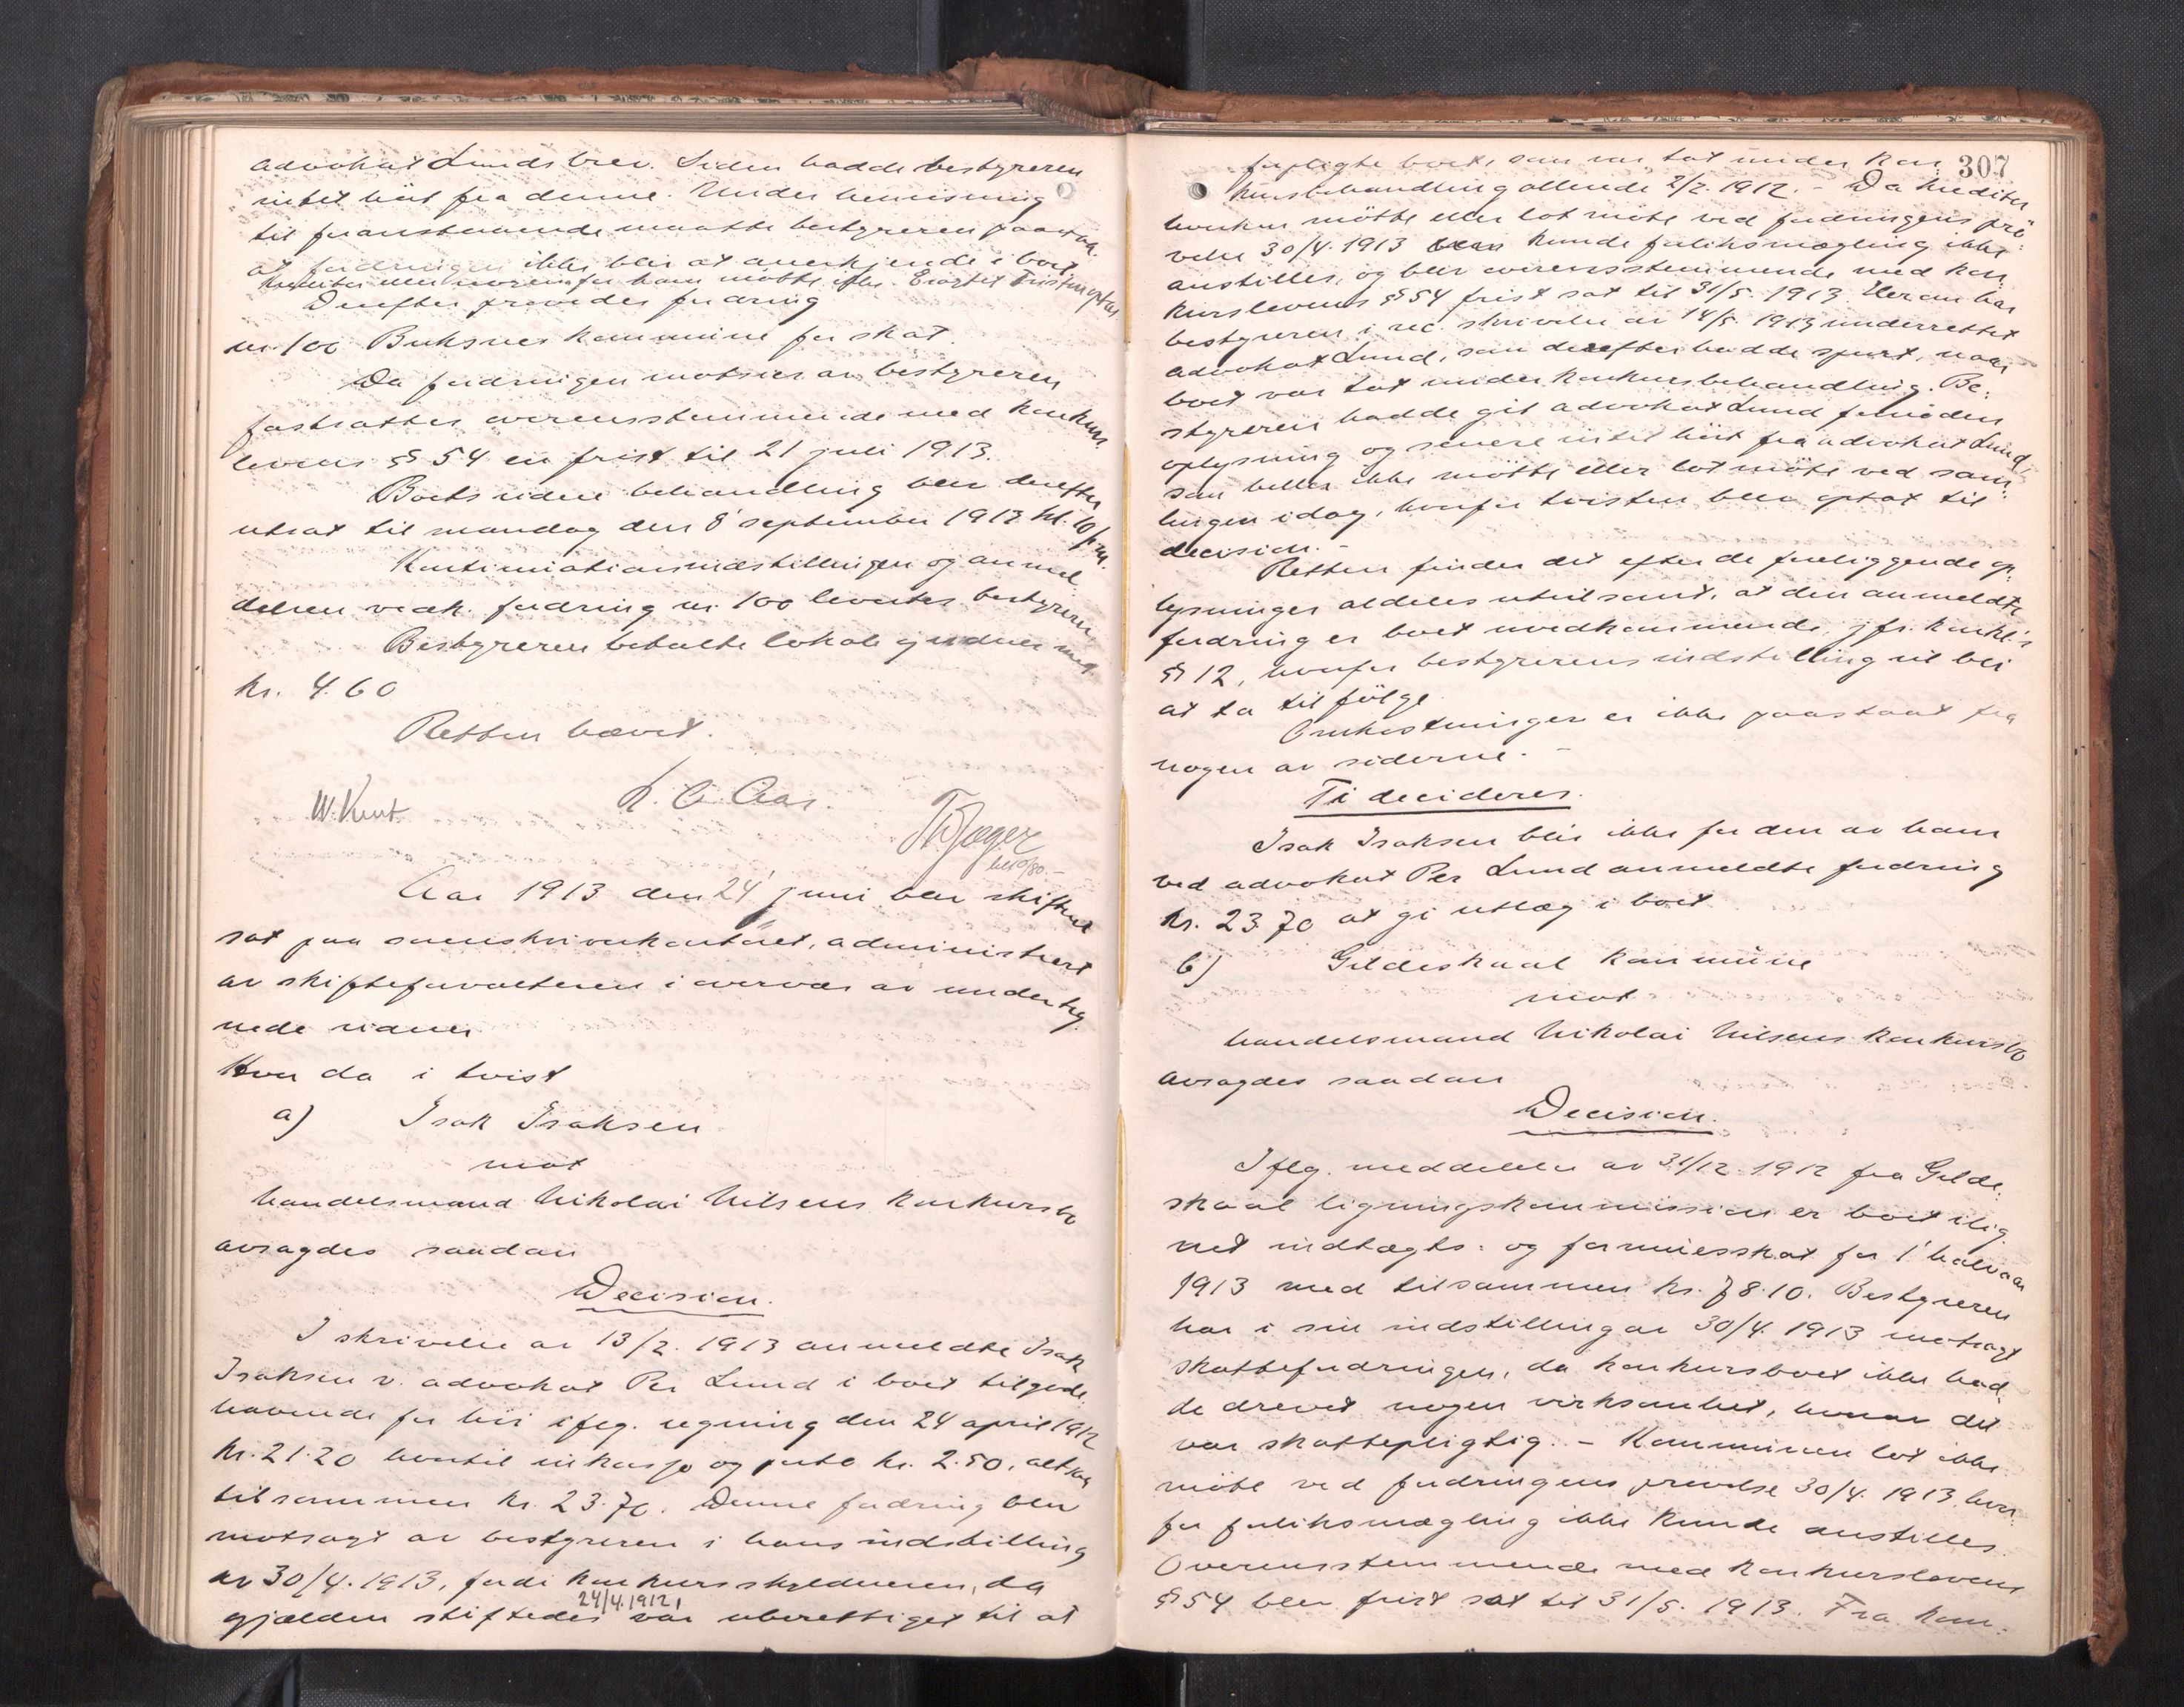 advokat Lunds brev. Siden hadde bestyreren
intet hört fra denne. Under henvisning
til foranstaaende maatte bestyreren paasta
at fordringen ikke blir at anerkjende i boet.
Kreditor eller noen for ham mötte ikke. Tvisten optat
Derefter prøvedes fordring
nr. 100 Buksnes kommune for skat.
Da fordringen motsies av bestyreren
fastsattes overensstemmende med konkurs
lovens § 54 en frist til 21 juli 1913.
Boets videre behandling blev derefter
utsat til mandag den 8' september 1913 kl. 10 fm.
Kontinuationsindstillingen og anmel
delsen vedk. fordring nr. 100 levertes bestyreren
Bestyreren betalte lokale og vidner med
kr. 4.60
Retten hævet.
W. Kent
K. O. Aas.
Th Jæger
Aar 1913 den 24' juni blev skifteret
sat paa sorenskriverkontoret, administrert
av skifteforvalteren i overvær av underteg
nede vidner
Hvor da i tvist
a) Isak Isaksen
mot
handelsmand Nikolai Nilsens konkursbo
avsagdes saadan
Decision.
I skrivelse av 13/2. 1913 anmeldte Isak
Isaksen v. advokat Per Lund i boet tilgode
havende for höi iflg. regning den 24 april 1912
kr. 21.20 hertil inkasso og porto kr. 2.50, altsaa
tilsammen kr. 23.70. Denne fordring blev
motsagt av bestyreren i hans indstilling
av 30/4. 1913, fordi konkursskyldneren, da
gjælden stiftedes 24/4.1912, var uberettiget til at
307
forpligte boet, som var tat under kon
kursbehandling allerede 2/2. 1912. – Da kreditor
hverken mötte eller lot möte ved fordringens prö
velse 30/4. 1913 kunde forliksmægling ikke
anstilles, og blev overensstemmende med kon
kurslovens § 54 frist sat til 31/5. 1913. Herom har
bestyreren i rec. skrivelse av 14/5. 1913 underrettet
advokat Lund, som derefter hadde spurt, naar
boet var tat under konkursbehandling. Be-
styreren hadde git advokat Lund fornöden
oplysning og senere intet hört fra advokat Lund,
som heller ikke mötte eller lot möte ved sam-
lingen idag, hvorfor tvisten blev optat til
decision. –
Retten finder det efter de foreliggende op
lysninger aldeles utvilsomt, at den anmeldte
fordring er boet uvedkommende, jfr. konkl.s
§ 12, hvorfor bestyrerens indstilling vil bli
at ta tilfölge.
Omkostninger er ikke paastaat fra
nogen av siderne. –
Ti decideres.
Isak Isaksen blir ikke for den av ham
ved advokat Per Lund anmeldte fordring
kr. 23.70 at gi utlæg i boet
b) Gildeskaal kommune
mot
handelsmand Nikolai Nilsens konkursbo
avsagdes saadan
Decision.
Iflg. meddelelse av 31/12. 1912 fra Gilde-
skaal ligningskommission er boet ilig
net indtægts- og formuesskat for 1' halvaar
1913 med tilsammen kr. 78.10. Bestyreren
har i sin indstilling av 30/4. 1913 motsagt
skattefordringen, da konkursboet ikke had
de drevet nogen virksomhet, hvorav det
var skattepligtig. – Kommunen lot ikke
möte ved fordringens prøvelse 30/4. 1913, hvor-
for forliksmægling ikke kunde anstilles.
Overensstemmende med konkurslovens
§ 54 blev frist sat til 31/5. 1913. Fra kom-